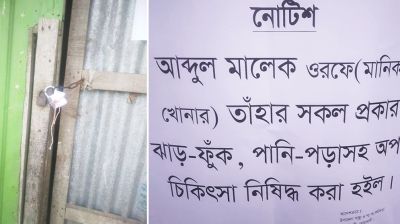 নোটিশ
আব্দুল মালেক ওরফে(মানিক
খোনার) তাঁহার সকল প্রকার
ঝাড়-ফুঁক, পানি-পড়াসহ অপ
চিকিৎসা নিষিদ্ধ করা হইল।